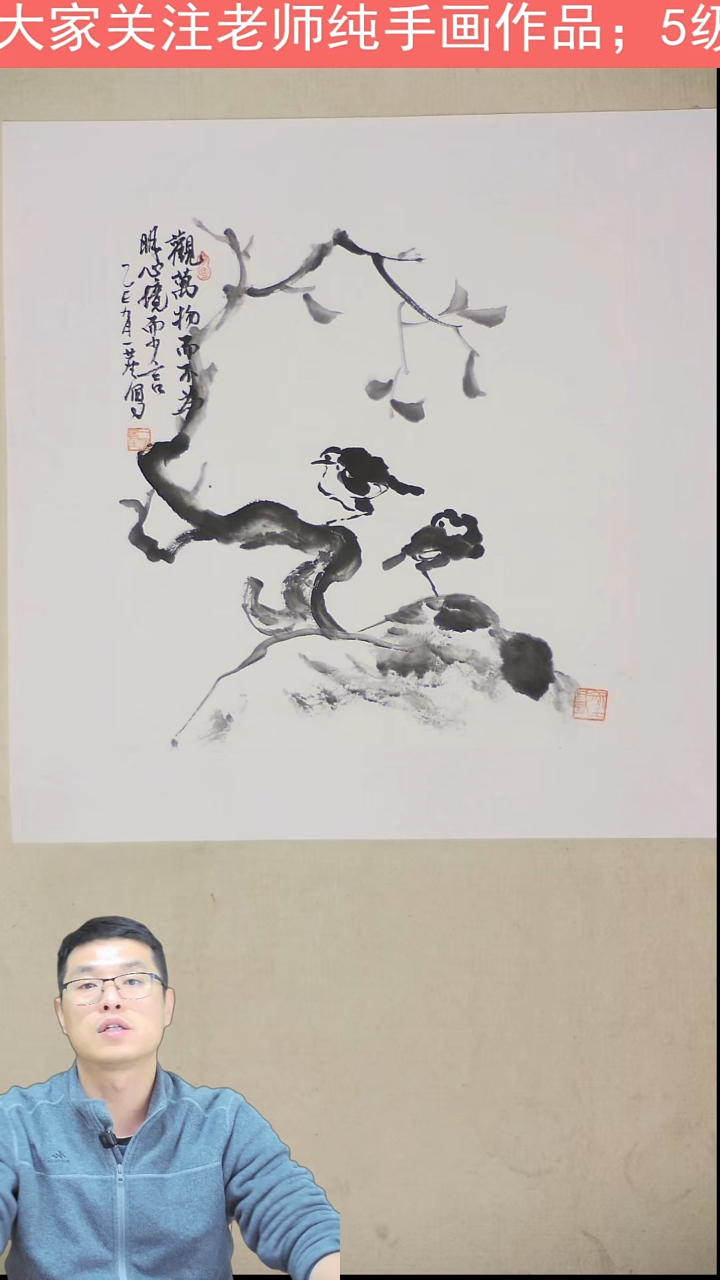 大家关注老师纯手画作品；5级
觀萬物而不為
明心境而少言
乙巳九月一